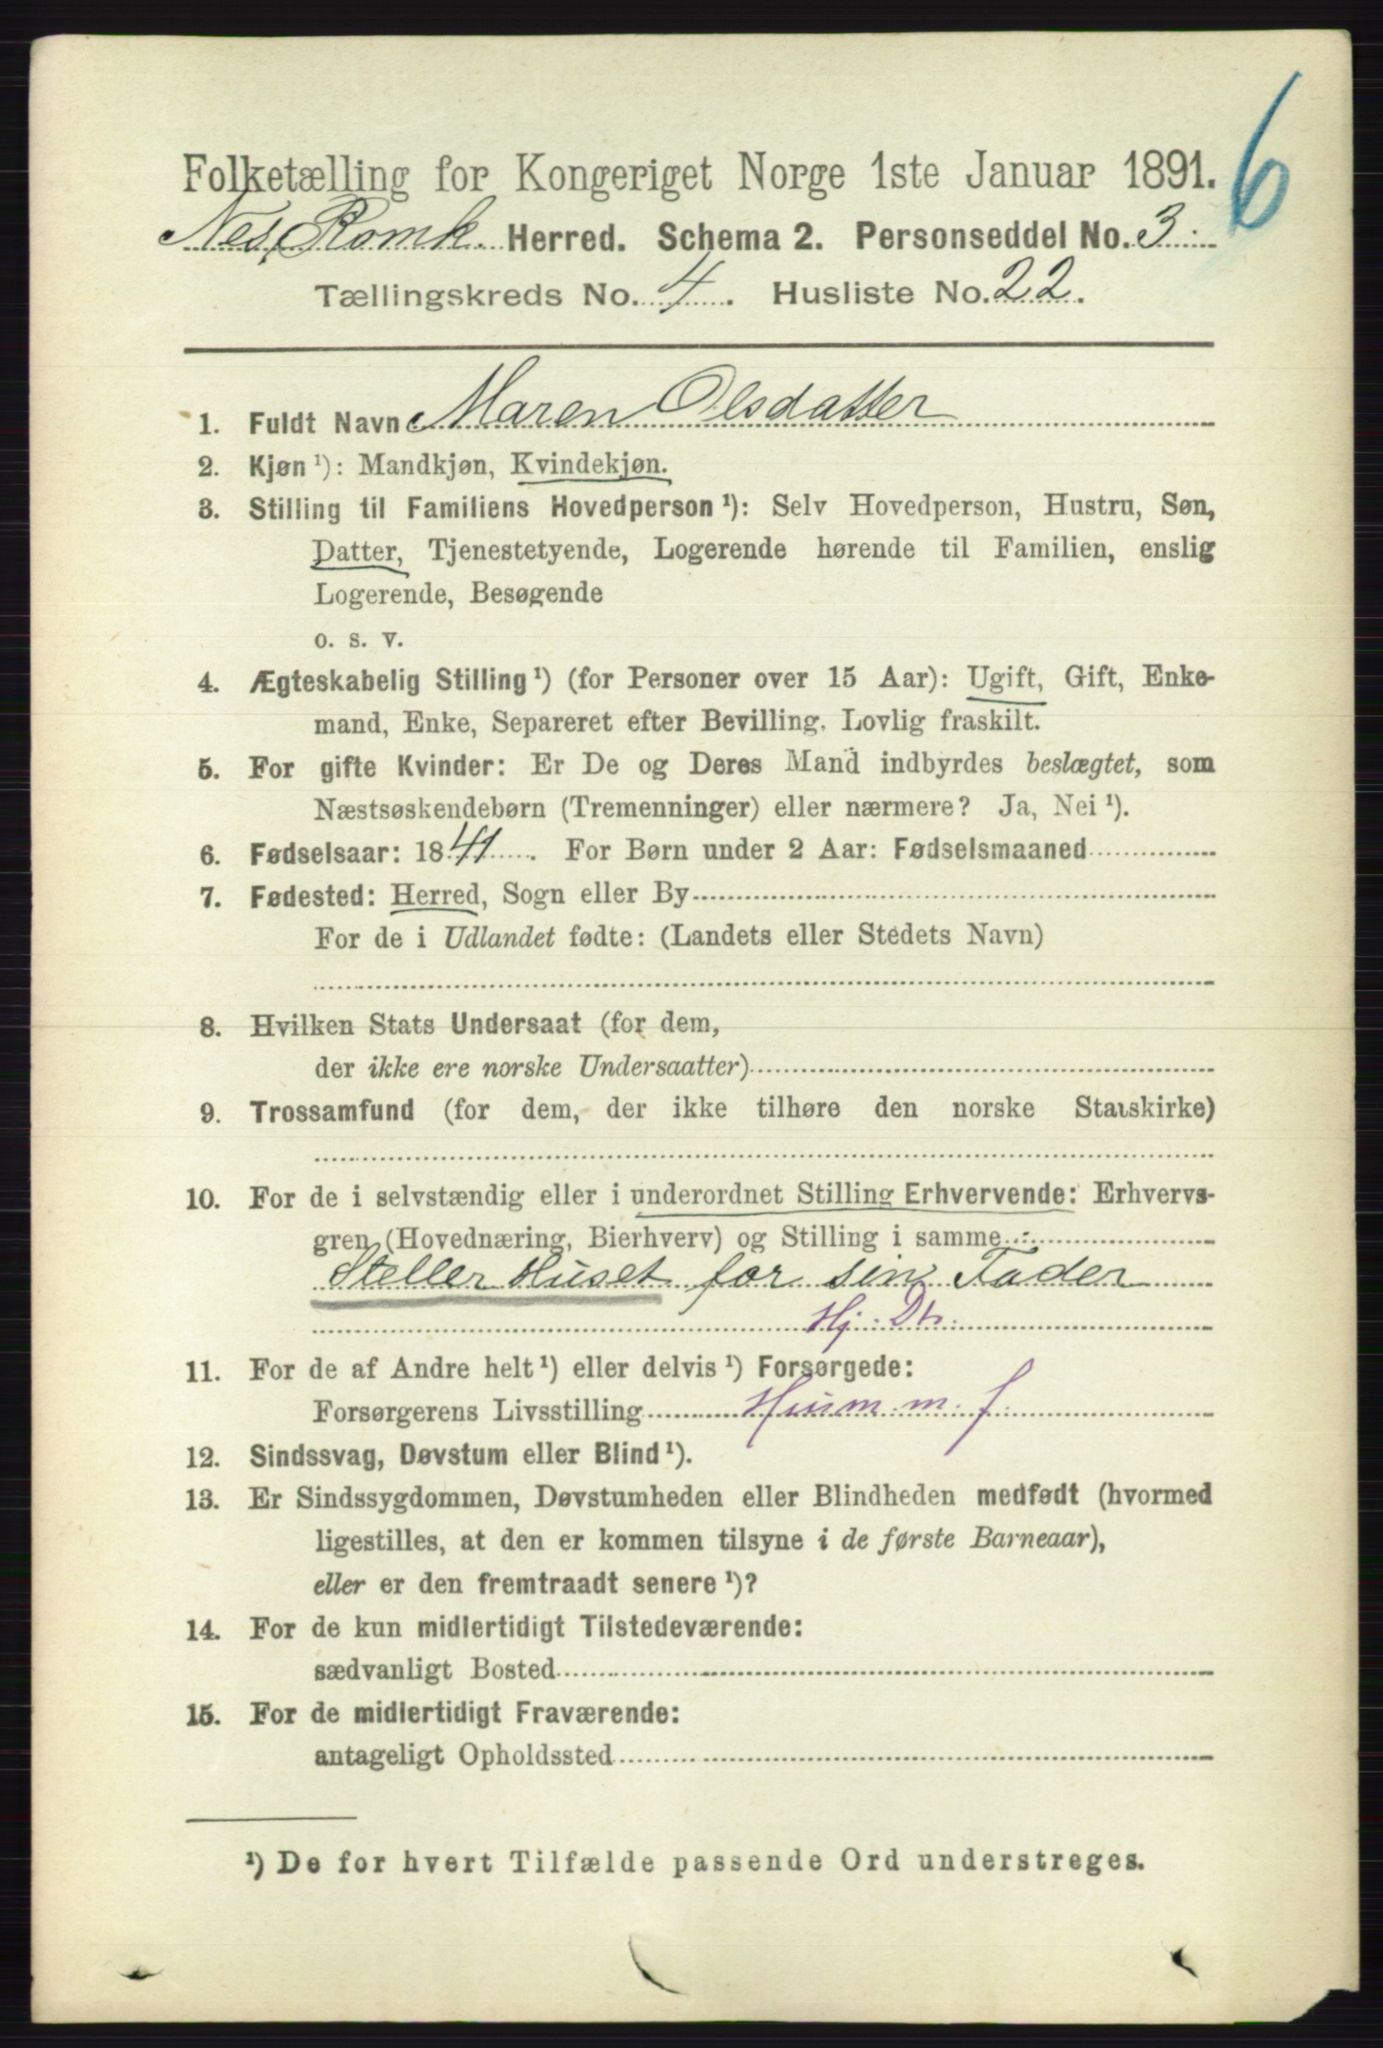 6
Folketælling for Kongeriget Norge 1ste Januar 1891.
Nes, Romk. Herred. Schema 2. Personseddel No. 3.
Tællingskreds No. 4. Husliste No. 22.
1. Fuldt Navn Maren Olsdatter
2. Kjøn ¹): Mandkjøn, Kvindekjøn.
3. Stilling til Familiens Hovedperson ¹): Selv Hovedperson, Hustru, Søn,
Datter, Tjenestetyende, Logerende hørende til Familien, enslig
Logerende, Besøgende
o. s. v.
4. Ægteskabelig Stilling ¹) (for Personer over 15 Aar): Ugift, Gift, Enke-
mand, Enke, Separeret efter Bevilling. Lovlig fraskilt.
5. For gifte Kvinder: Er De og Deres Mand indbyrdes beslægtet, som
Næstsøskendebørn (Tremenninger) eller nærmere? Ja, Nei ¹).
6. Fødselsaar: 1841. For Børn under 2 Aar: Fødselsmaaned
7. Fødested: Herred, Sogn eller By
For de i Udlandet fødte: (Landets eller Stedets Navn)
8. Hvilken Stats Undersaat (for dem,
der ikke ere norske Undersaatter)
9. Trossamfund (for dem, der ikke tilhøre den norske Statskirke)
10. For de i selvstændig eller i underordnet Stilling Erhvervende: Erhvervs-
gren (Hovednæring, Bierhverv) og Stilling i samme
Steller Huset for sin Fader
Hj. Dtr.
11. For de af Andre helt ¹) eller delvis ¹) Forsørgede:
Forsørgerens Livsstilling Husm. m. J.
12. Sindssvag, Døvstum eller Blind ¹).
13. Er Sindssygdommen, Døvstumheden eller Blindheden medfødt (hvormed
ligestilles, at den er kommen tilsyne i de første Barneaar),
eller er den fremtraadt senere ¹)?
14. For de kun midlertidigt Tilstedeværende:
sædvanligt Bosted
15. For de midlertidigt Fraværende:
antageligt Opholdssted
¹) De for hvert Tilfælde passende Ord understreges.